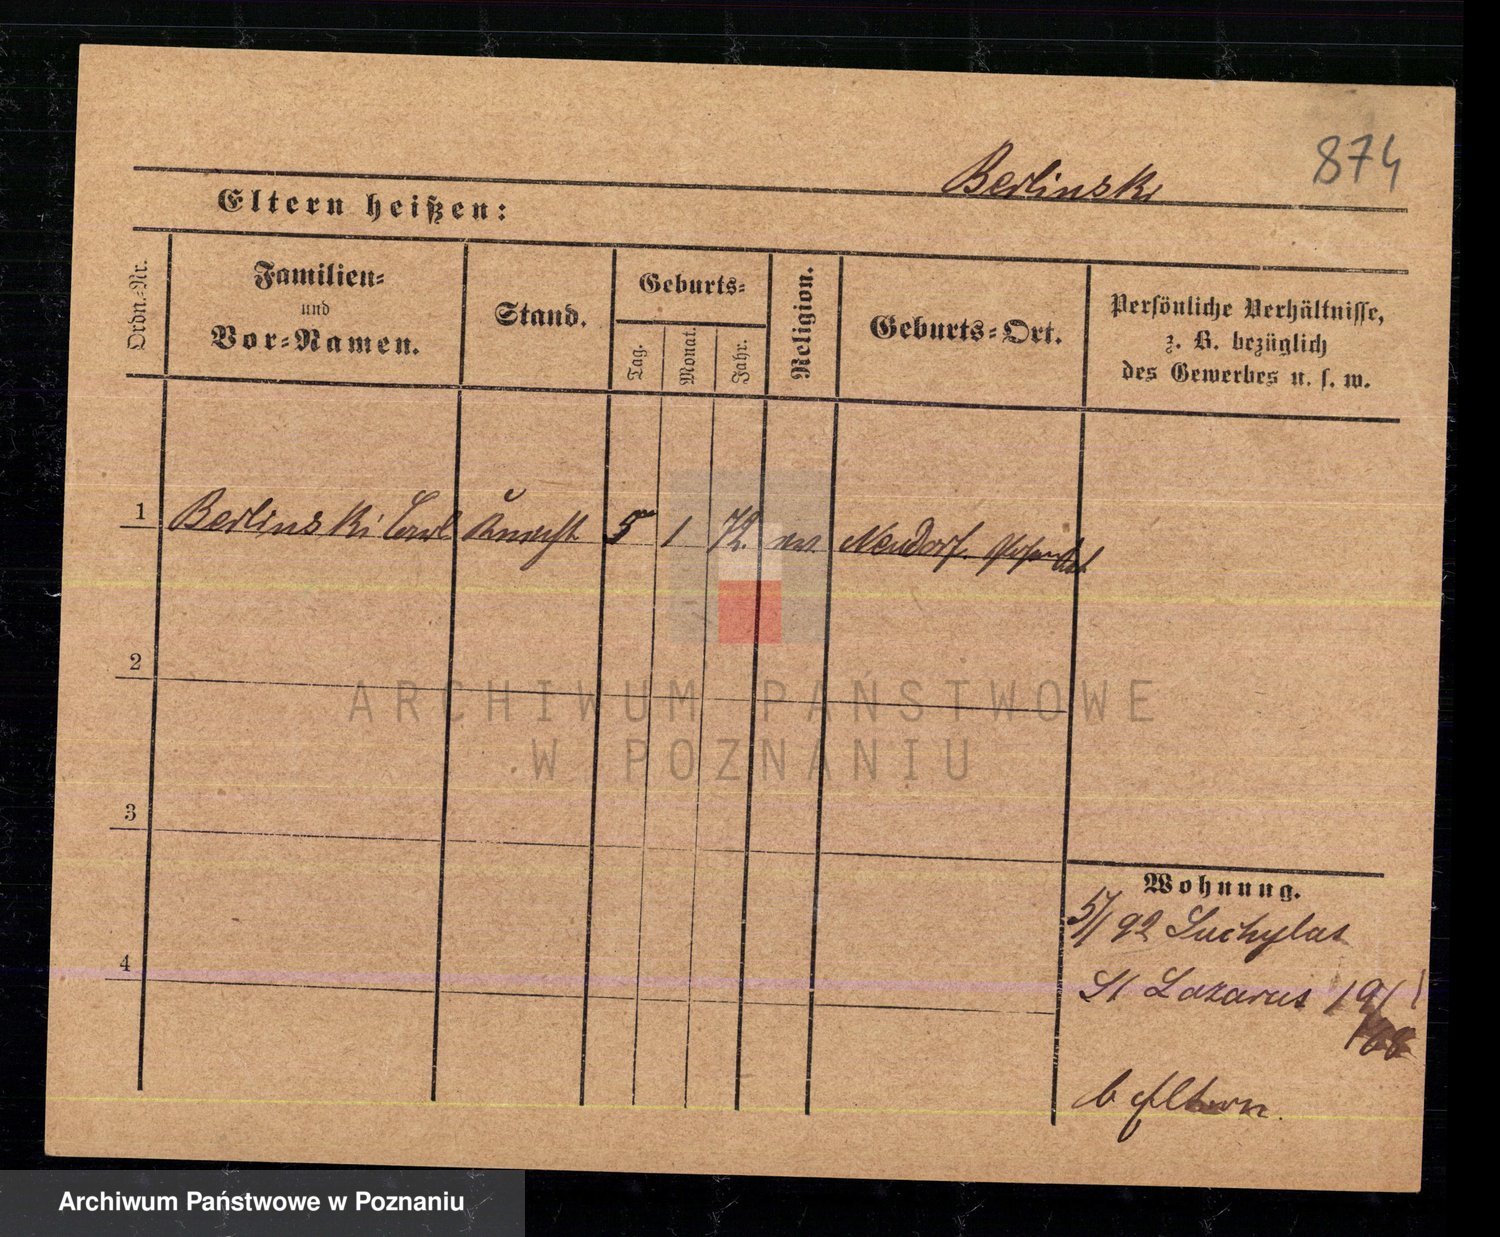 874
Berlinski
Eltern heißen:
Ordn.-Nr.
Familien-
und
Vor-Namen.
Stand.
Geburts-
Tag.
Monat.
Jahr.
Religion.
Geburts-Ort.
Persönliche Verhältnisse,
z. B. bezüglich
des Gewerbes u. s. w.
1 Berlinski Carl Knecht 5 1 72. ev. Neudorf.
2
3
4
ARCHIWUM PAŃSTWOWE
W POZNANIU
Wohnung.
5/1 92 Suchylas
St Lazarus 19/1
b Eltern.
Archiwum Państwowe w Poznaniu